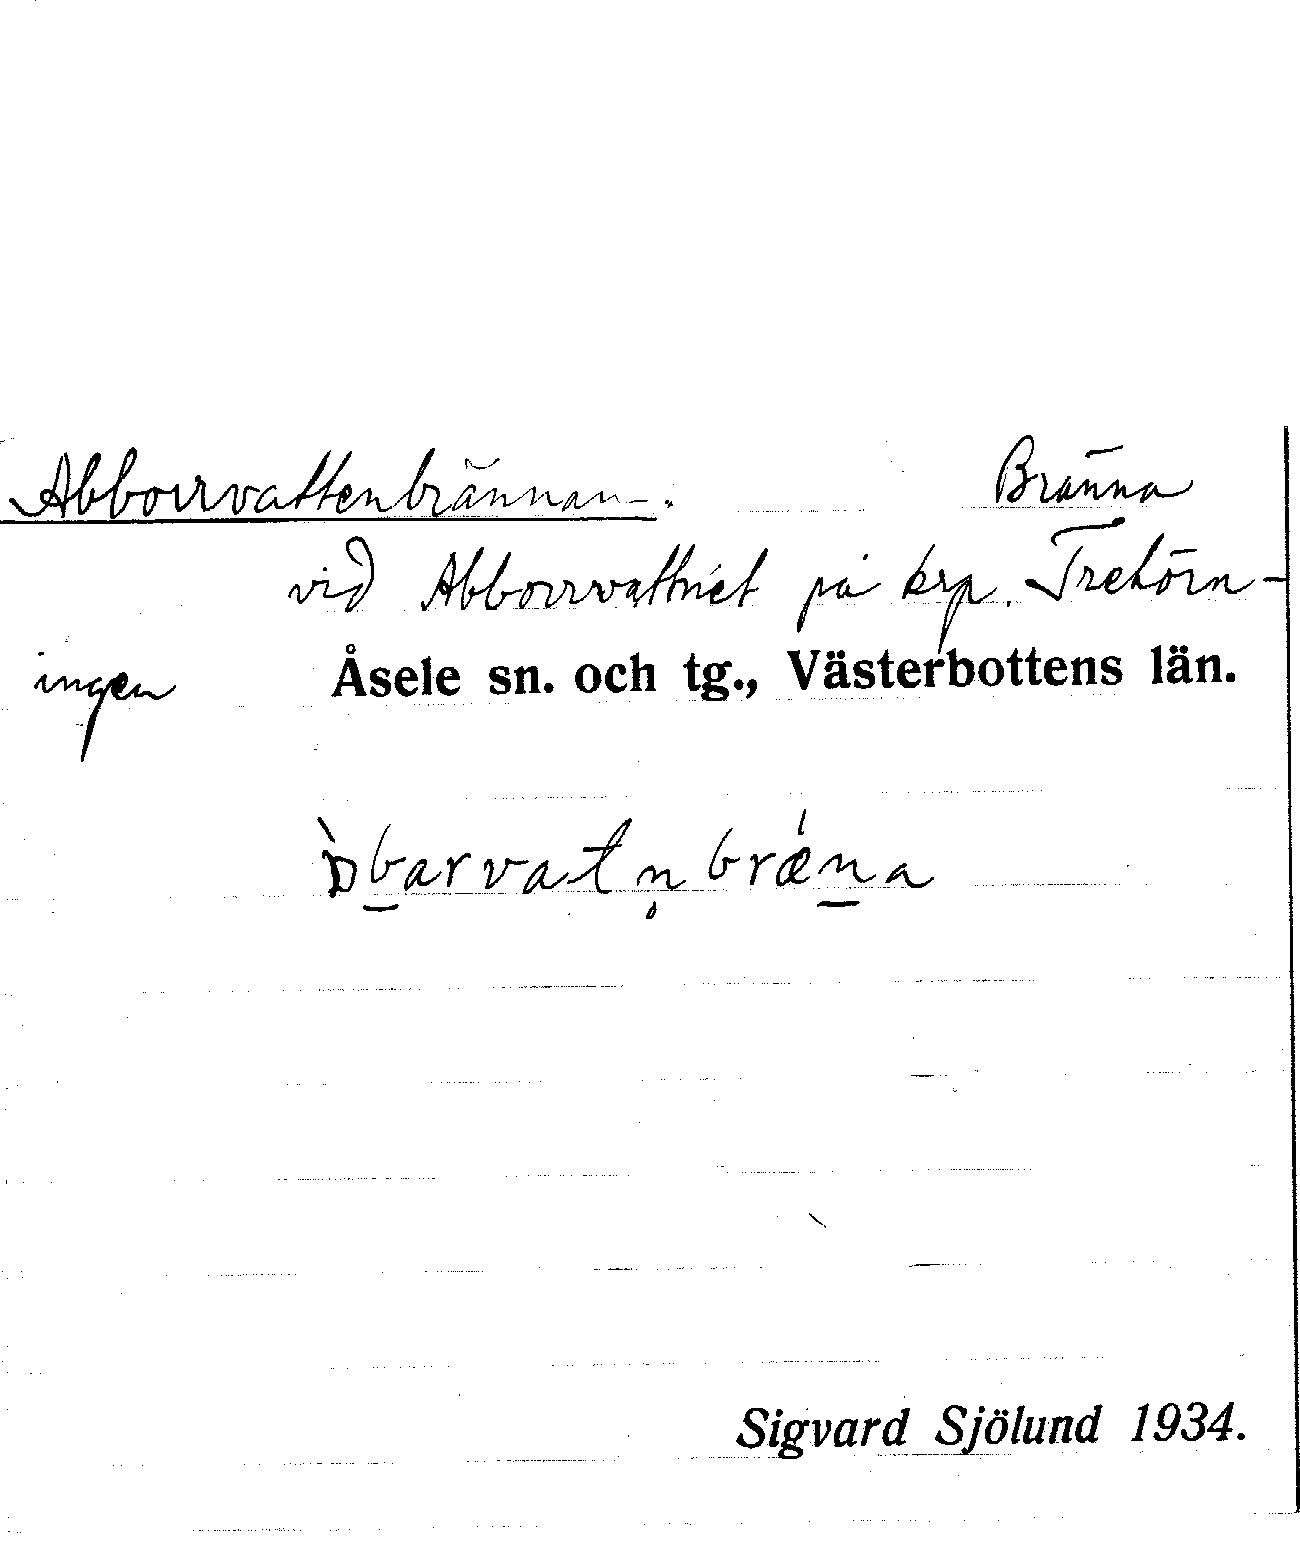 Abborrvattenbrännan. Bränna
vid Abborrvattnet på krp. Trehörn-
ingen Åsele sn. och tg., Västerbottens län.
ɒ̀b̲arvatn̥brǽn̲a
Sigvard Sjölund 1934.